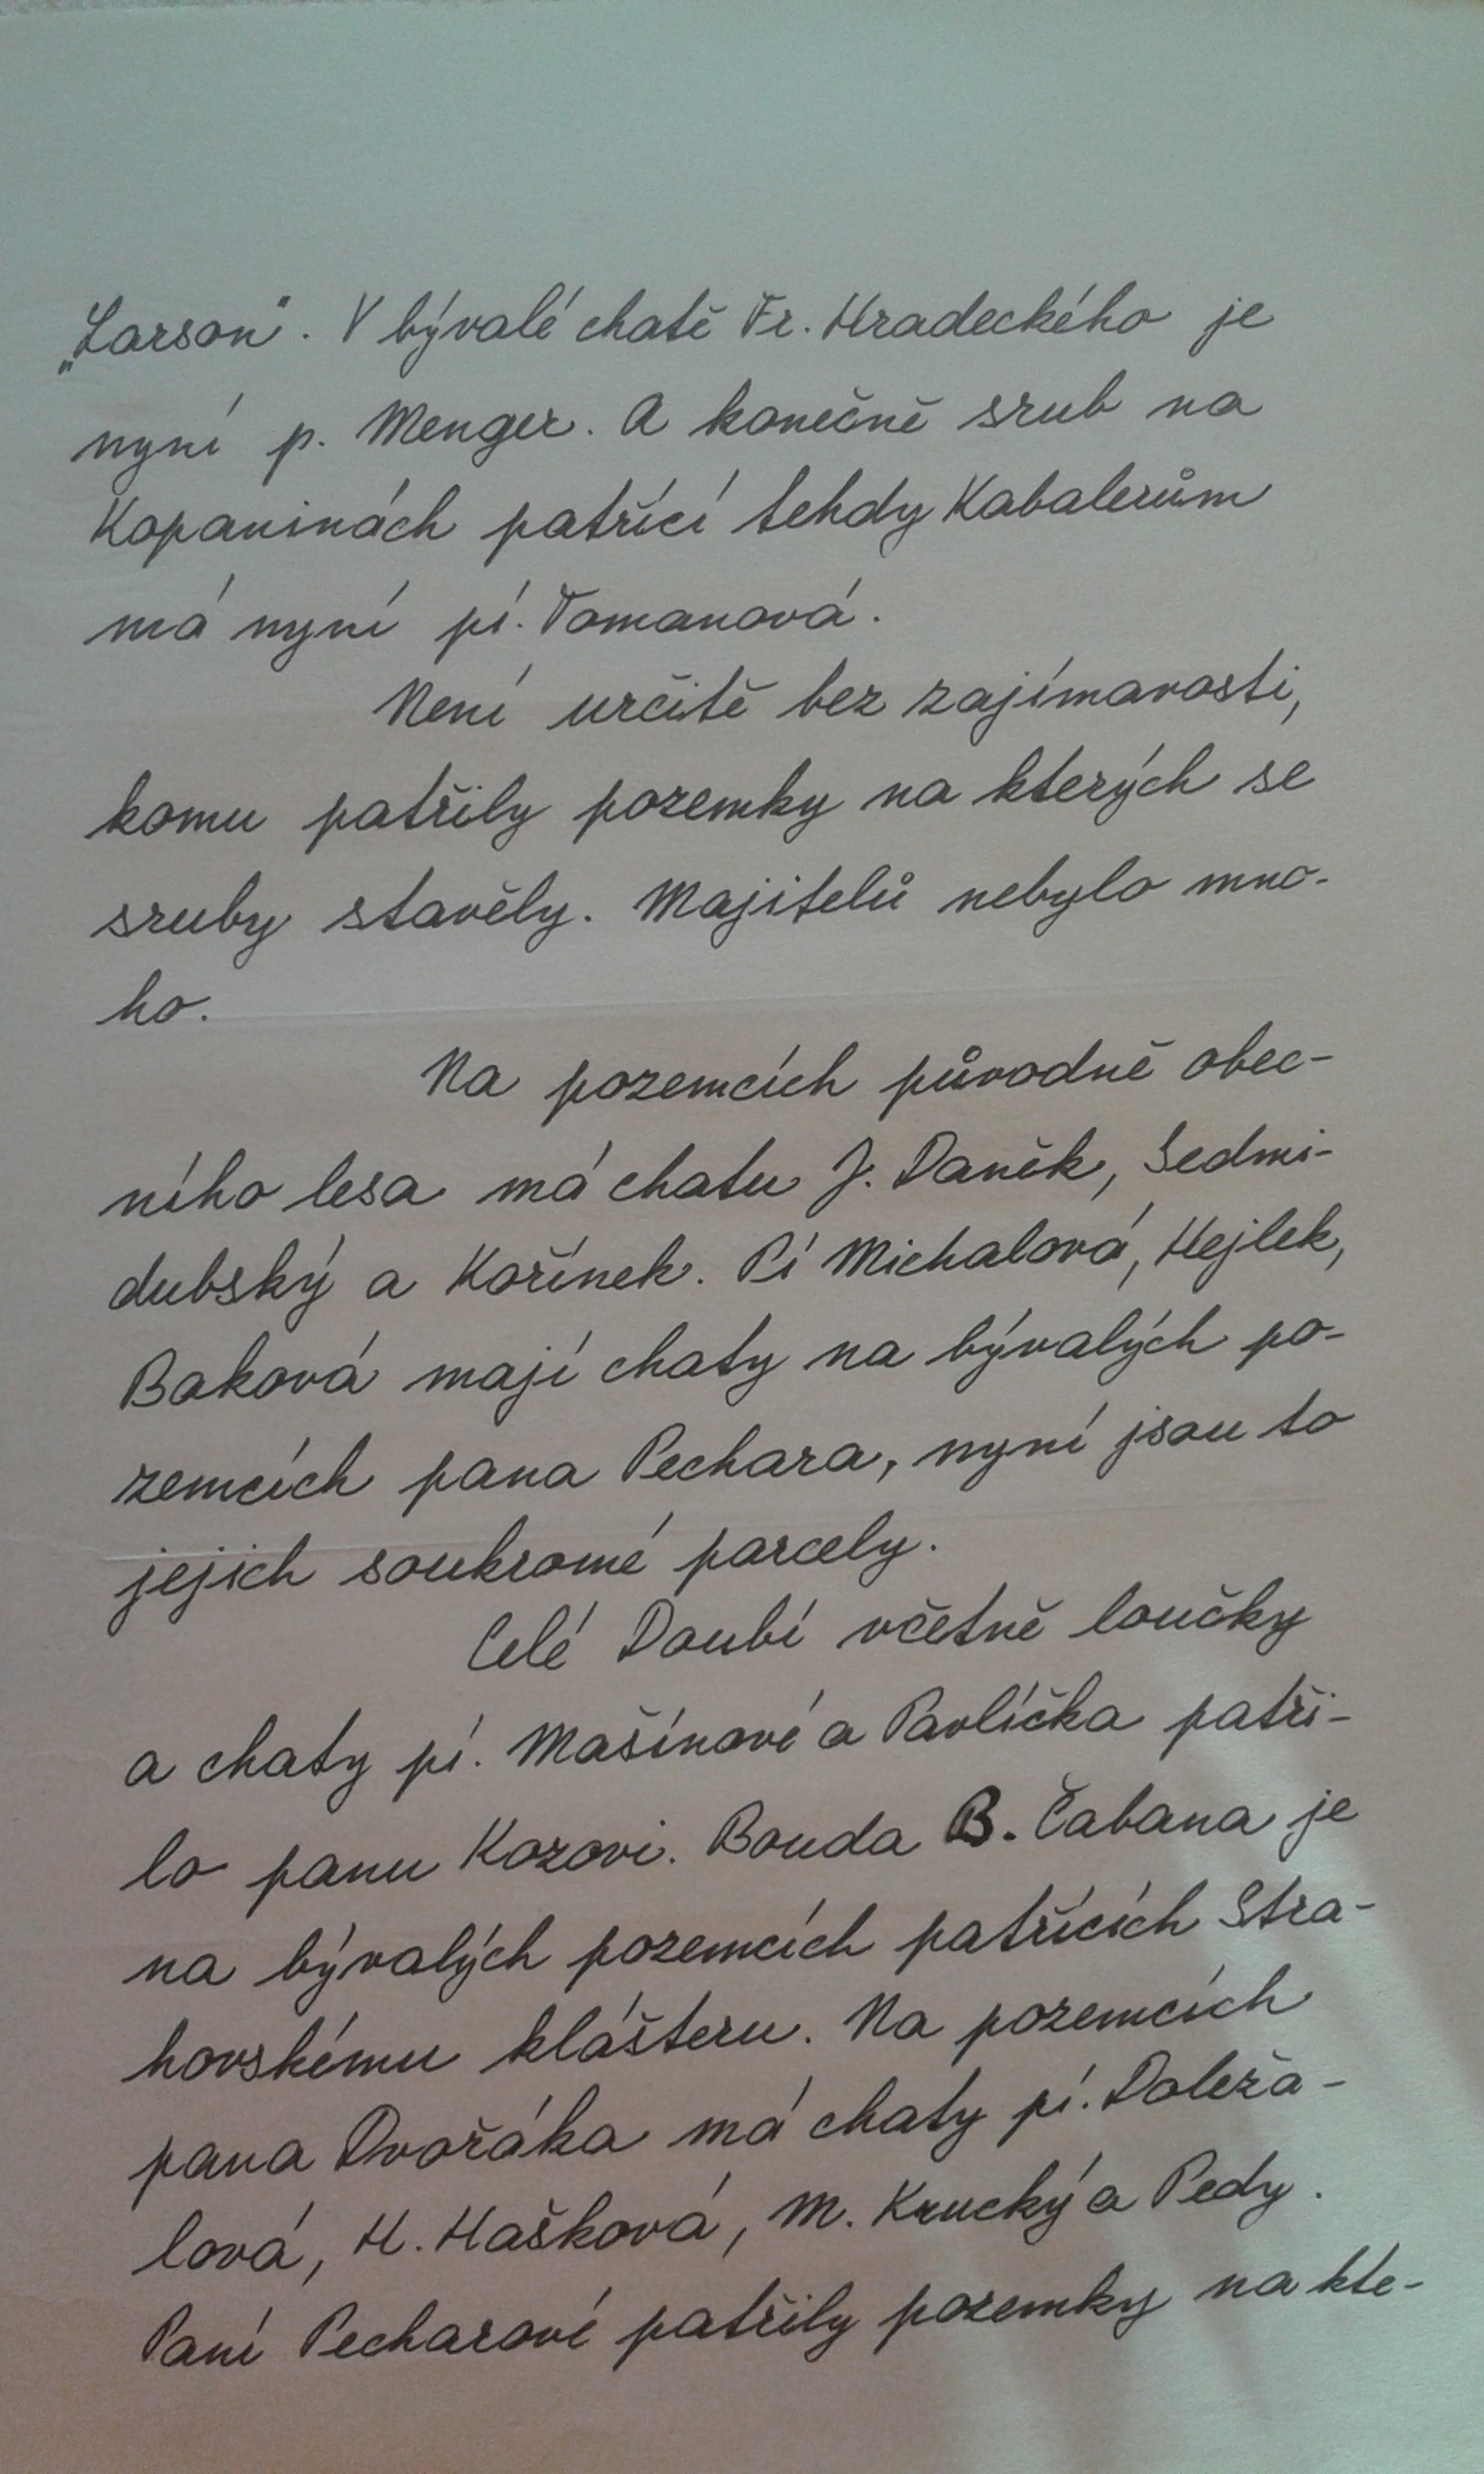 „Larson". V bývalé chatě Fr. Hradeckého je
nyní p. Menger. A konečně srub na
Kopaninách patřící tehdy Kabalerům
má nyní pí. Tomanová.
Není určitě bez zajímavosti,
komu patřily pozemky na kterých se
sruby stavěly. Majitelů nebylo mno-
ho.
Na pozemcích původně obec-
ního lesa má chatu J. Daněk, Sedmi-
dubský a Kořínek. Pí Michalová, Hejlek,
Baková mají chaty na bývalých po-
zemcích pana Pechara, nyní jsou to
jejich soukromé parcely.
Celé Doubí včetně loučky
a chaty pí. Mašínové a Pavlíčka patři-
lo panu Kozovi. Bouda B. Čabana je
na bývalých pozemcích patřících Stra-
hovskému klášteru. Na pozemcích
pana Dvořáka má chaty pí. Doleža-
lová, H. Hašková, M. Krucký a Pedy.
Paní Pecharové patřily pozemky na kte-